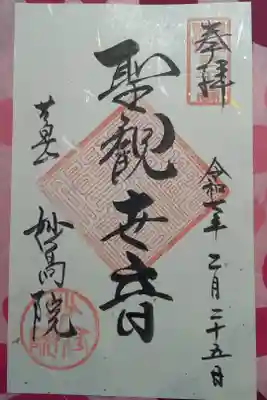 奉拝
令和二年二月二十五日
聖観世音
妙高院